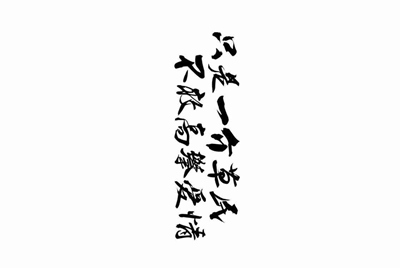 只是一介草民
不敢高攀爱情